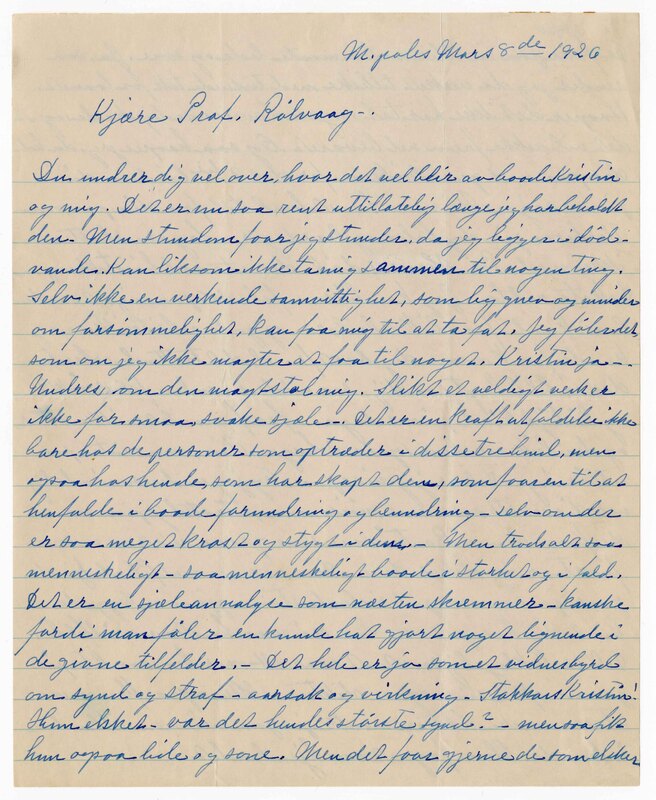 M.poles Mars 8de 1926
Kjære Prof. Rölvaag-.
Du undrer dig vel over, hvor det vel blir av baade Kristin
og mig. Det er nu saa rent utillatelig længe jeg har beholdt
den. Men stundom faar jeg stunder, da jeg ligger i död-
vande. Kan liksom ikke ta mig sammen til nogen ting.
Selv ikke en verkende samvittighet, som og minder
om forsömmelighet, kan faa mig til at ta fat. Jeg föler det
som om jeg ikke magter at faa til noget. Kristin ja-.
Undres om den magtstal mig. Slikt et veldigt verk er
ikke for smaa, svake sjæle-. Det er en kraftutfoldelse ikke
bare hos de personer som optræder i disse tre bind, men
ogsaa hos hende, som har skapt dem, som faar en til at
henfalde i baade forundring og beundring - selv om der
er saa meget krast og stygt i dem. - Men trods alt saa
menneskeligt - saa menneskeligt baade i storhet og i fald.
Det er en sjæleannalyse som næsten skremmer - kanske
fordi man föler en kunde hat gjort noget lignende i
de givne tilfelder. - Det hele er jo som et vidnesbyrd
om synd og straf - aarsak og virkning - Stakkars Kristin!
Hun elsket - var det hendes störste synd? - men saa fik
hun ogsaa lide og sone. Men det faar gjerne de som elsker